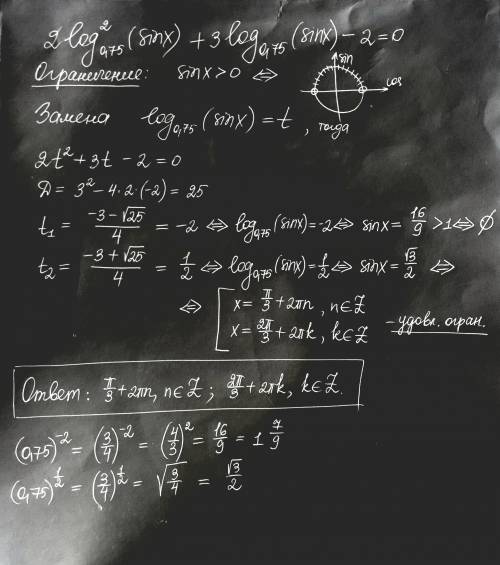 2log²₀,₇₅(sinx) + 3log₀,₇₅(sinx) - 2 = 0
Ограничение: sinx > 0 ⇔ sin cos
Замена log₀,₇₅(sinx) = t, тогда
2t² + 3t - 2 = 0
Д = 3² - 4·2·(-2) = 25
t₁ = (-3 - √25)/4 = -2 ⇔ log₀,₇₅(sinx) = -2 ⇔ sinx = 16/9 > 1 ⇔ ∅
t₂ = (-3 + √25)/4 = 1/2 ⇔ log₀,₇₅(sinx) = 1/2 ⇔ sinx = √3/2 ⇔
⇔ [ x = π/3 + 2πn, n∈Z
x = 2π/3 + 2πk, k∈Z - удовл. огран.
Ответ: π/3 + 2πn, n∈Z; 2π/3 + 2πk, k∈Z.
(0,75)⁻² = (3/4)⁻² = (4/3)² = 16/9 = 1 7/9
(0,75)^½ = (3/4)^½ = √(3/4) = √3/2